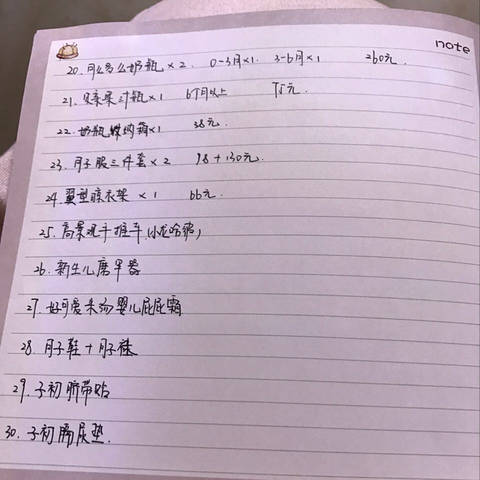 note
20. 月么多么奶瓶 × 2. 0-3月×1. 3-6月×1 260元.
21. 贝亲果汁瓶×1 6个月以上 75元.
22. 奶瓶收纳箱×1 38元.
23. 月子服三件套 × 2 98 + 130元.
24. 翼型晾衣架 × 1 66元.
25. 高景观手推车(小龙哈彼)
26. 新生儿磨牙器
27. 好可爱米汤婴儿屁屁霜
28. 月子鞋 + 月子袜
29. 子初脐带贴
30. 子初隔尿垫.